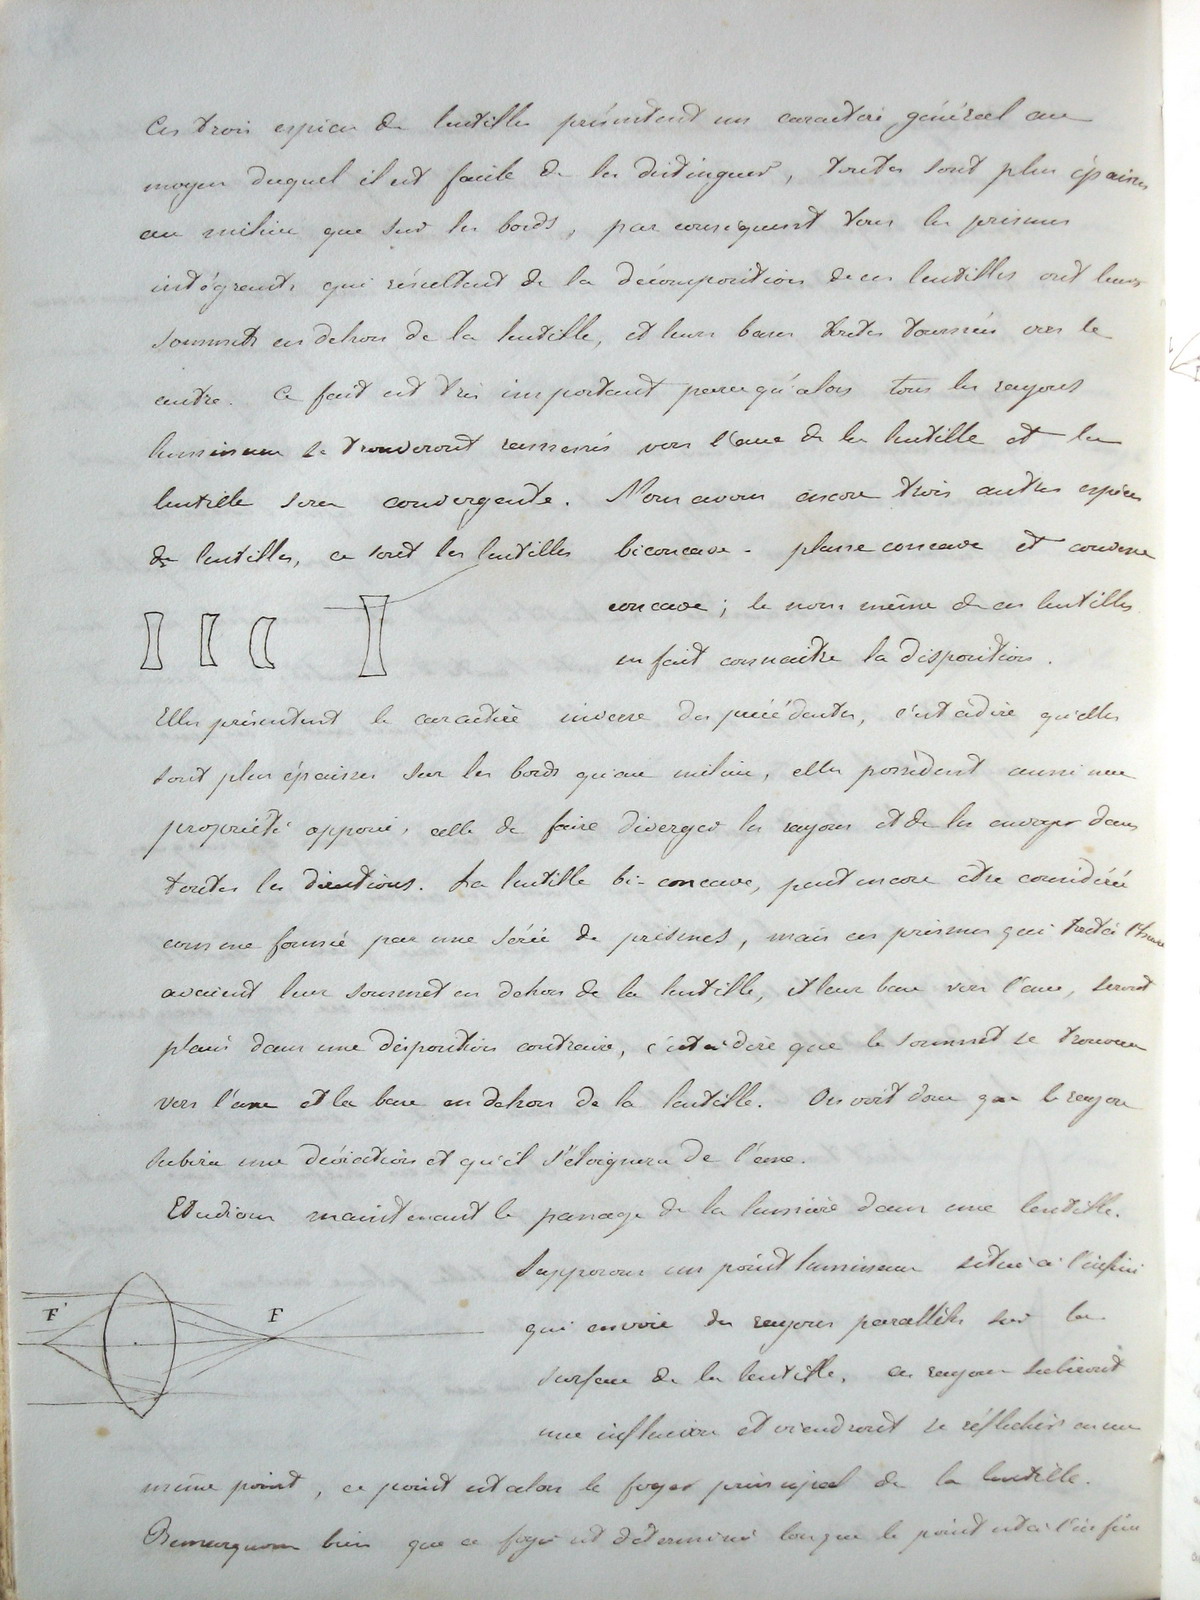 Ces trois espèces de lentilles présentent un caractère général au
moyen duquel il est facile de les distinguer, toutes sont plus épaisses
au milieu que sur les bords, par conséquent tous les prismes
intégrants qui résultent de la décomposition de ces lentilles ont leurs
sommets en dehors de la lentille, et leurs bases toutes tournées vers le
centre. Ce fait est très important parcequ'alors tous les rayons
lumineux se trouveront ramenés vers l'axe de la lentille et la
lentille sera convergente. Nous avons encore trois autres espèces
de lentilles, ce sont les lentilles biconcave - plane concave et convexe
concave ; le nom même de ces lentilles
en fait connaitre la disposition.
Elles présentent le caractère inverse des précédentes, c'est adire qu'elles
sont plus épaisses sur les bords qu'au milieu, elles possèdent aussi une
propriété opposée, celle de faire diverger les rayons et de les envoyer dans
toutes les directions. La lentille bi-concave, peut encore être considérée
comme formée par une série de prismes, mais ces prismes qui tout à l'heure
avaient leur sommet en dehors de la lentille, et leur base vers l'axe, seront
placés dans une disposition contraire, c'est à dire que le sommet se trouvera
vers l'axe et la base en dehors de la lentille. On voit donc que le rayon
subira une déviation et qu'il s'éloignera de l'axe.
Etudions maintenant le passage de la lumière dans une lentille.
Supposons un point lumineux situé à l'infini
qui envoie des rayons parallèles sur la
surface de la lentille, ces rayons subiront
une inflexion et viendront se réfléchir en un
F' F
même point, ce point est alors le foyer principal de la lentille.
Remarquons bien que ce foyer est déterminé lorsque le point est à l'infini